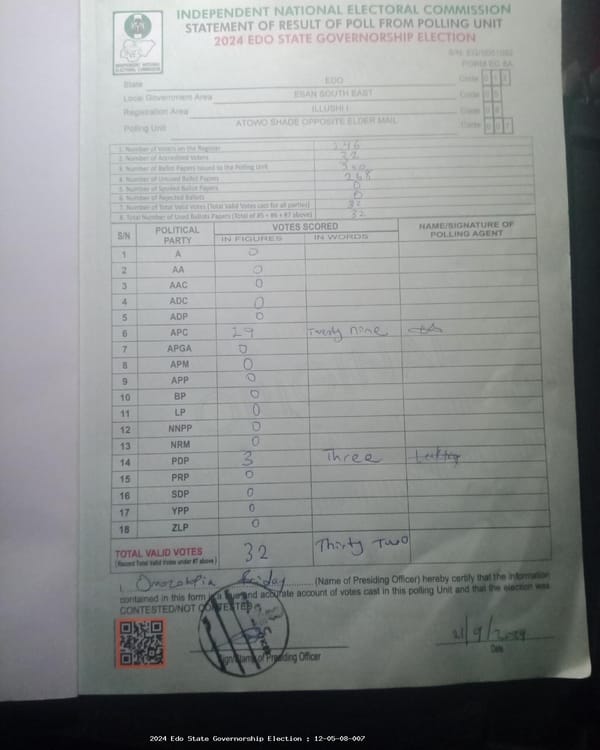 INDEPENDENT NATIONAL ELECTORAL COMMISSION
STATEMENT OF RESULT OF POLL FROM POLLING UNIT
2024 EDO STATE GOVERNORSHIP ELECTION
INDEPENDENT NATIONAL ELECTORAL COMMISSION
FORM EC 8A
State EDO Code
Local Government Area ESAN SOUTH EAST Code
Registration Area ILLUSHI I Code
Polling Unit ATOWO SHADE OPPOSITE ELDER MAIL Code
1. Number of Voters on the Register 346
2. Number of Accredited Voters 32
3. Number of Ballot Papers Issued to the Polling Unit
4. Number of Unused Ballot Papers 268
5. Number of Spoiled Ballot Papers 0
6. Number of Rejected Ballots 0
7. Number of Total Valid Votes (Total Valid Votes cast for all parties) 32
8. Total Number of Used Ballots Papers (Total of #5 + #6 + #7 above) 32
S/N POLITICAL PARTY VOTES SCORED NAME/SIGNATURE OF POLLING AGENT
IN FIGURES IN WORDS
1 A 0
2 AA 0
3 AAC 0
4 ADC 0
5 ADP 0
6 APC 29 Twenty nine
7 APGA 0
8 APM 0
9 APP 0
10 BP 0
11 LP 0
12 NNPP 0
13 NRM 0
14 PDP 3 Three
15 PRP 0
16 SDP 0
17 YPP 0
18 ZLP 0
TOTAL VALID VOTES 32 Thirty Two
(Record Total Valid Votes under #7 above)
I, Friday (Name of Presiding Officer) hereby certify that the information
contained in this form is a true and accurate account of votes cast in this polling Unit and that the election was
CONTESTED/NOT CONTESTED
Sign/Name of Presiding Officer
21/9/2024
Date
2024 Edo State Governorship Election : 12-05-08-007